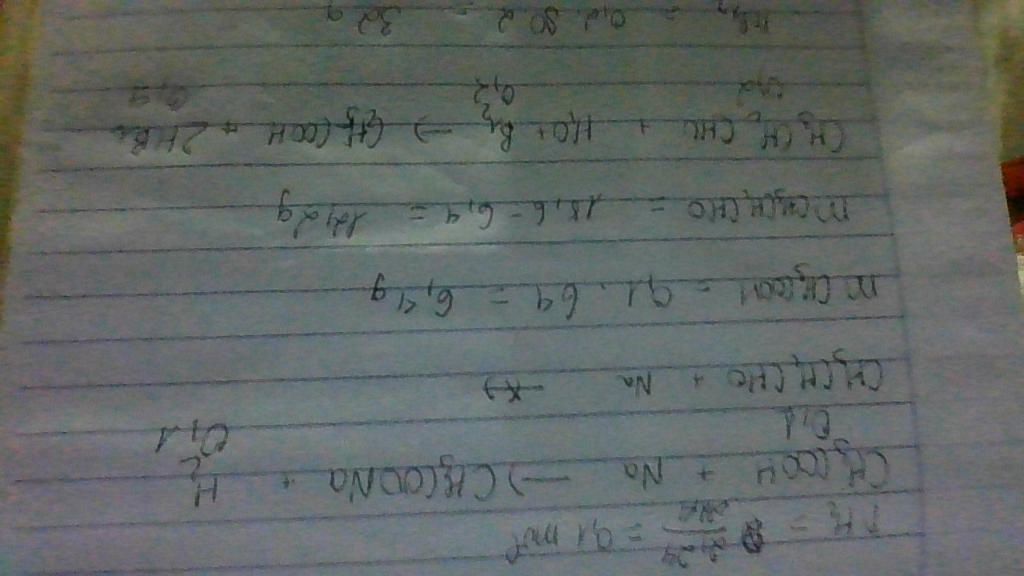 nH₂ = 2,24/22,4 = 0,1 mol
CH₃COOH + Na → CH₃COONa + H₂
0,1 0,1
CH₃CH₂CHO + Na -x→
mCH₃COOH = 0,1 . 64 = 6,4g
mCH₃CH₂CHO = 18,6 - 6,4 = 12,2g
CH₃CH₂CHO + H₂O + Br₂ → C₂H₅COOH + 2HBr
0,2 0,2 0,4
mBr₂ = 0,2 . 80 . 2 = 32 g